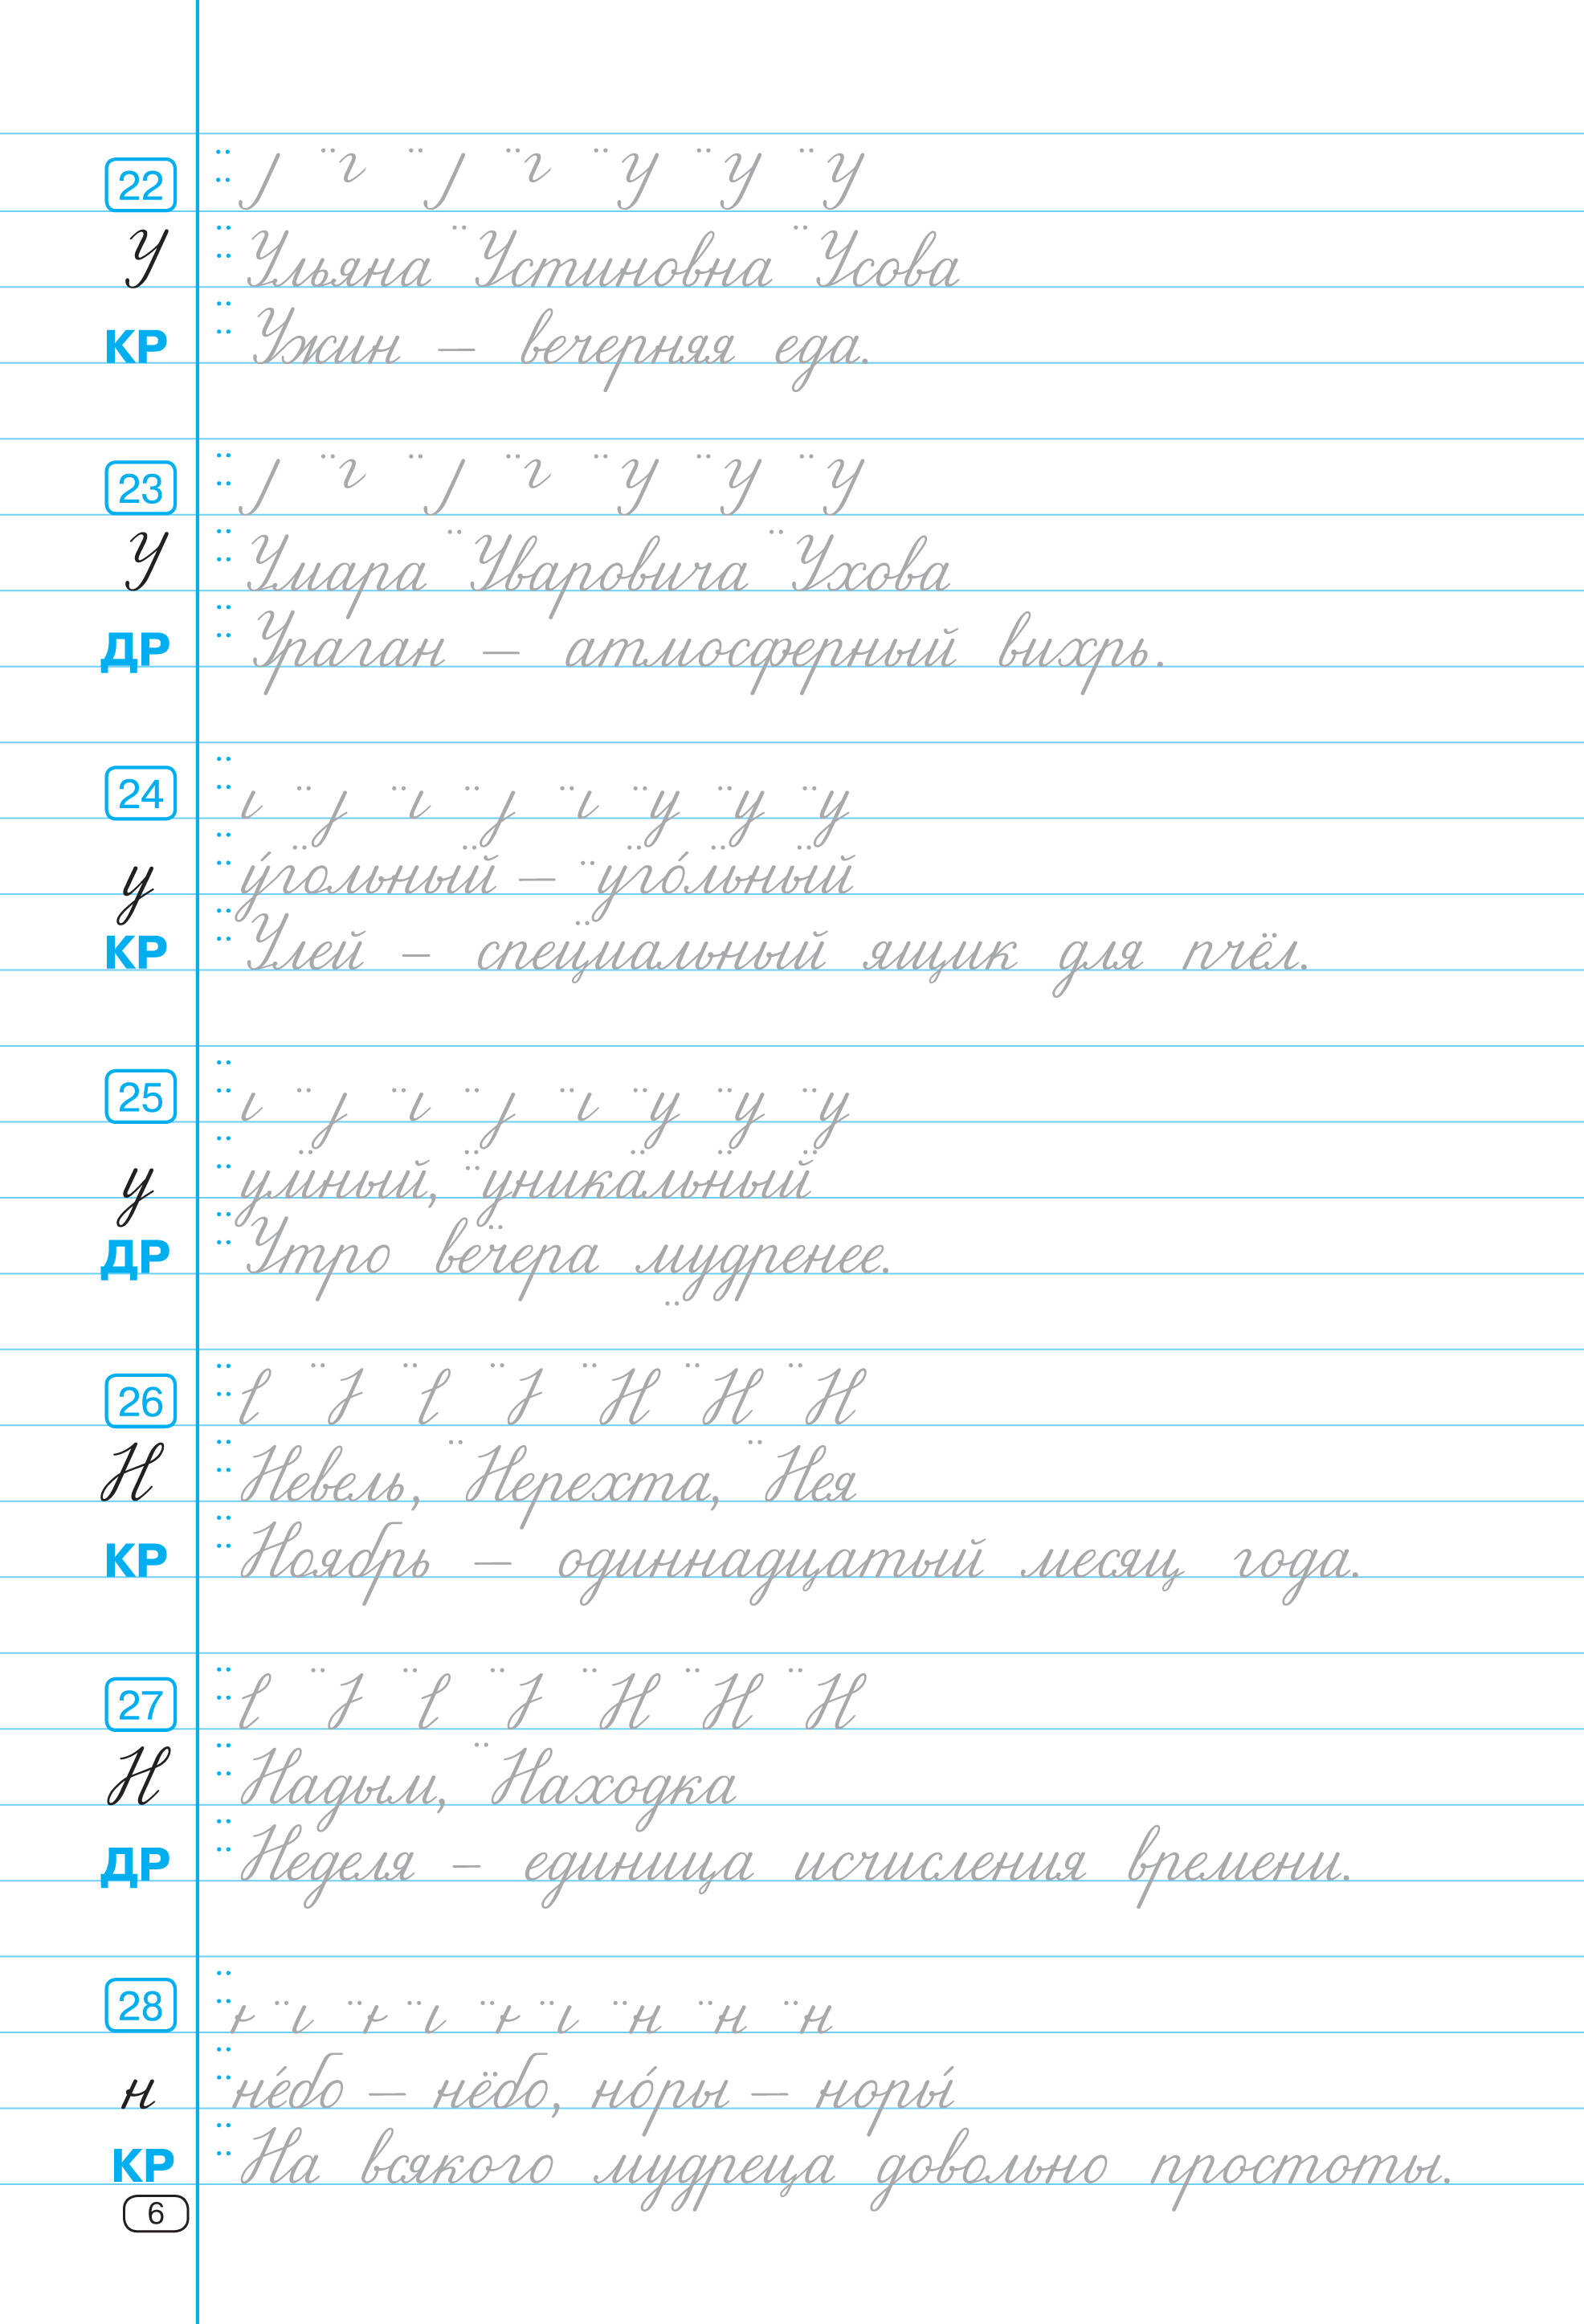 22 У У У
У Ульяна Устиновна Усова
КР Ужин – вечерняя еда.
23 У У У
У Умара Уваровича Ухова
ДР Ураган – атмосферный вихрь.
24 у у у
у у́гольный – уго́льный
КР Улей – специальный ящик для пчёл.
25 у у у
у умный, уникальный
ДР Утро вечера мудренее.
26 Н Н Н
Н Невель, Нерехта, Нея
КР Ноябрь – одиннадцатый месяц года.
27 Н Н Н
Н Надым, Находка
ДР Неделя – единица исчисления времени.
28 н н н
н не́бо – нёбо, но́ры – норы́
КР На всякого мудреца довольно простоты.
6